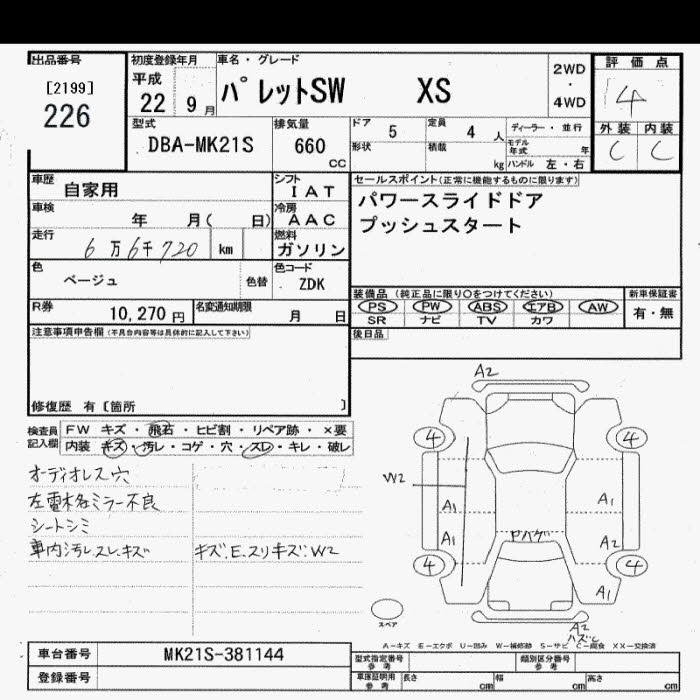 出品番号
[2199]
226
初度登録年月
平成
22 9月
車名・グレード
パレットSW XS
2WD
・
4WD
評価点
4
外装 内装
C C
型式
DBA-MK21S
排気量
660
CC
ドア 5
定員 4人
ディーラー・並行
形状
積載 kg
モデル年式 年
ハンドル 左・右
車歴
自家用
シフト
IAT
車検
年 月( 日)
冷房
AAC
走行
6万6千720 km
燃料
ガソリン
色
ベージュ
色替
色コード
ZDK
R券
10,270円
名変通知期限
月 日
セールスポイント(正常に機能するものに限ります)
パワースライドドア
プッシュスタート
装備品(純正品に限り〇をつけてください)
新車保証書
PS PW ABS エアB AW
有・無
SR ナビ TV カワ
後日品
注意事項申告欄(不具合内容等は具体的に記入して下さい)
修復歴 有〔箇所 〕
検査員記入欄
FW キズ・飛石・ヒビ割・リペア跡・×要
内装 キズ・汚レ・コゲ・穴・スレ・キレ・破レ
オーディオレス穴
左電格ミラー不良
シートシミ
車内汚レスレキズ
キズ.E.スリキズ.W2
A2
4 4
W2
A1 A1
A1 ドハゲ A2
4 4
A1
スペア
A2
A-キズ E-エクボ U-凹み W-補修跡 S-サビ C-腐食 XX-交換済
車台番号
MK21S-381144
登録番号
型式指定番号
参考
類別区分番号
参考
車庫証明用
参考
長さ cm
幅 cm
高さ cm